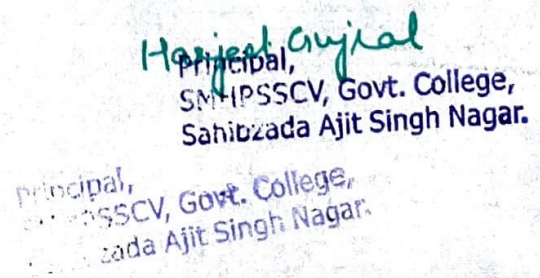 Harjeet Gujral
Principal,
SMHPSSCV, Govt. College,
Sahibzada Ajit Singh Nagar.
Principal,
SSCV, Govt. College,
zada Ajit Singh Nagar.